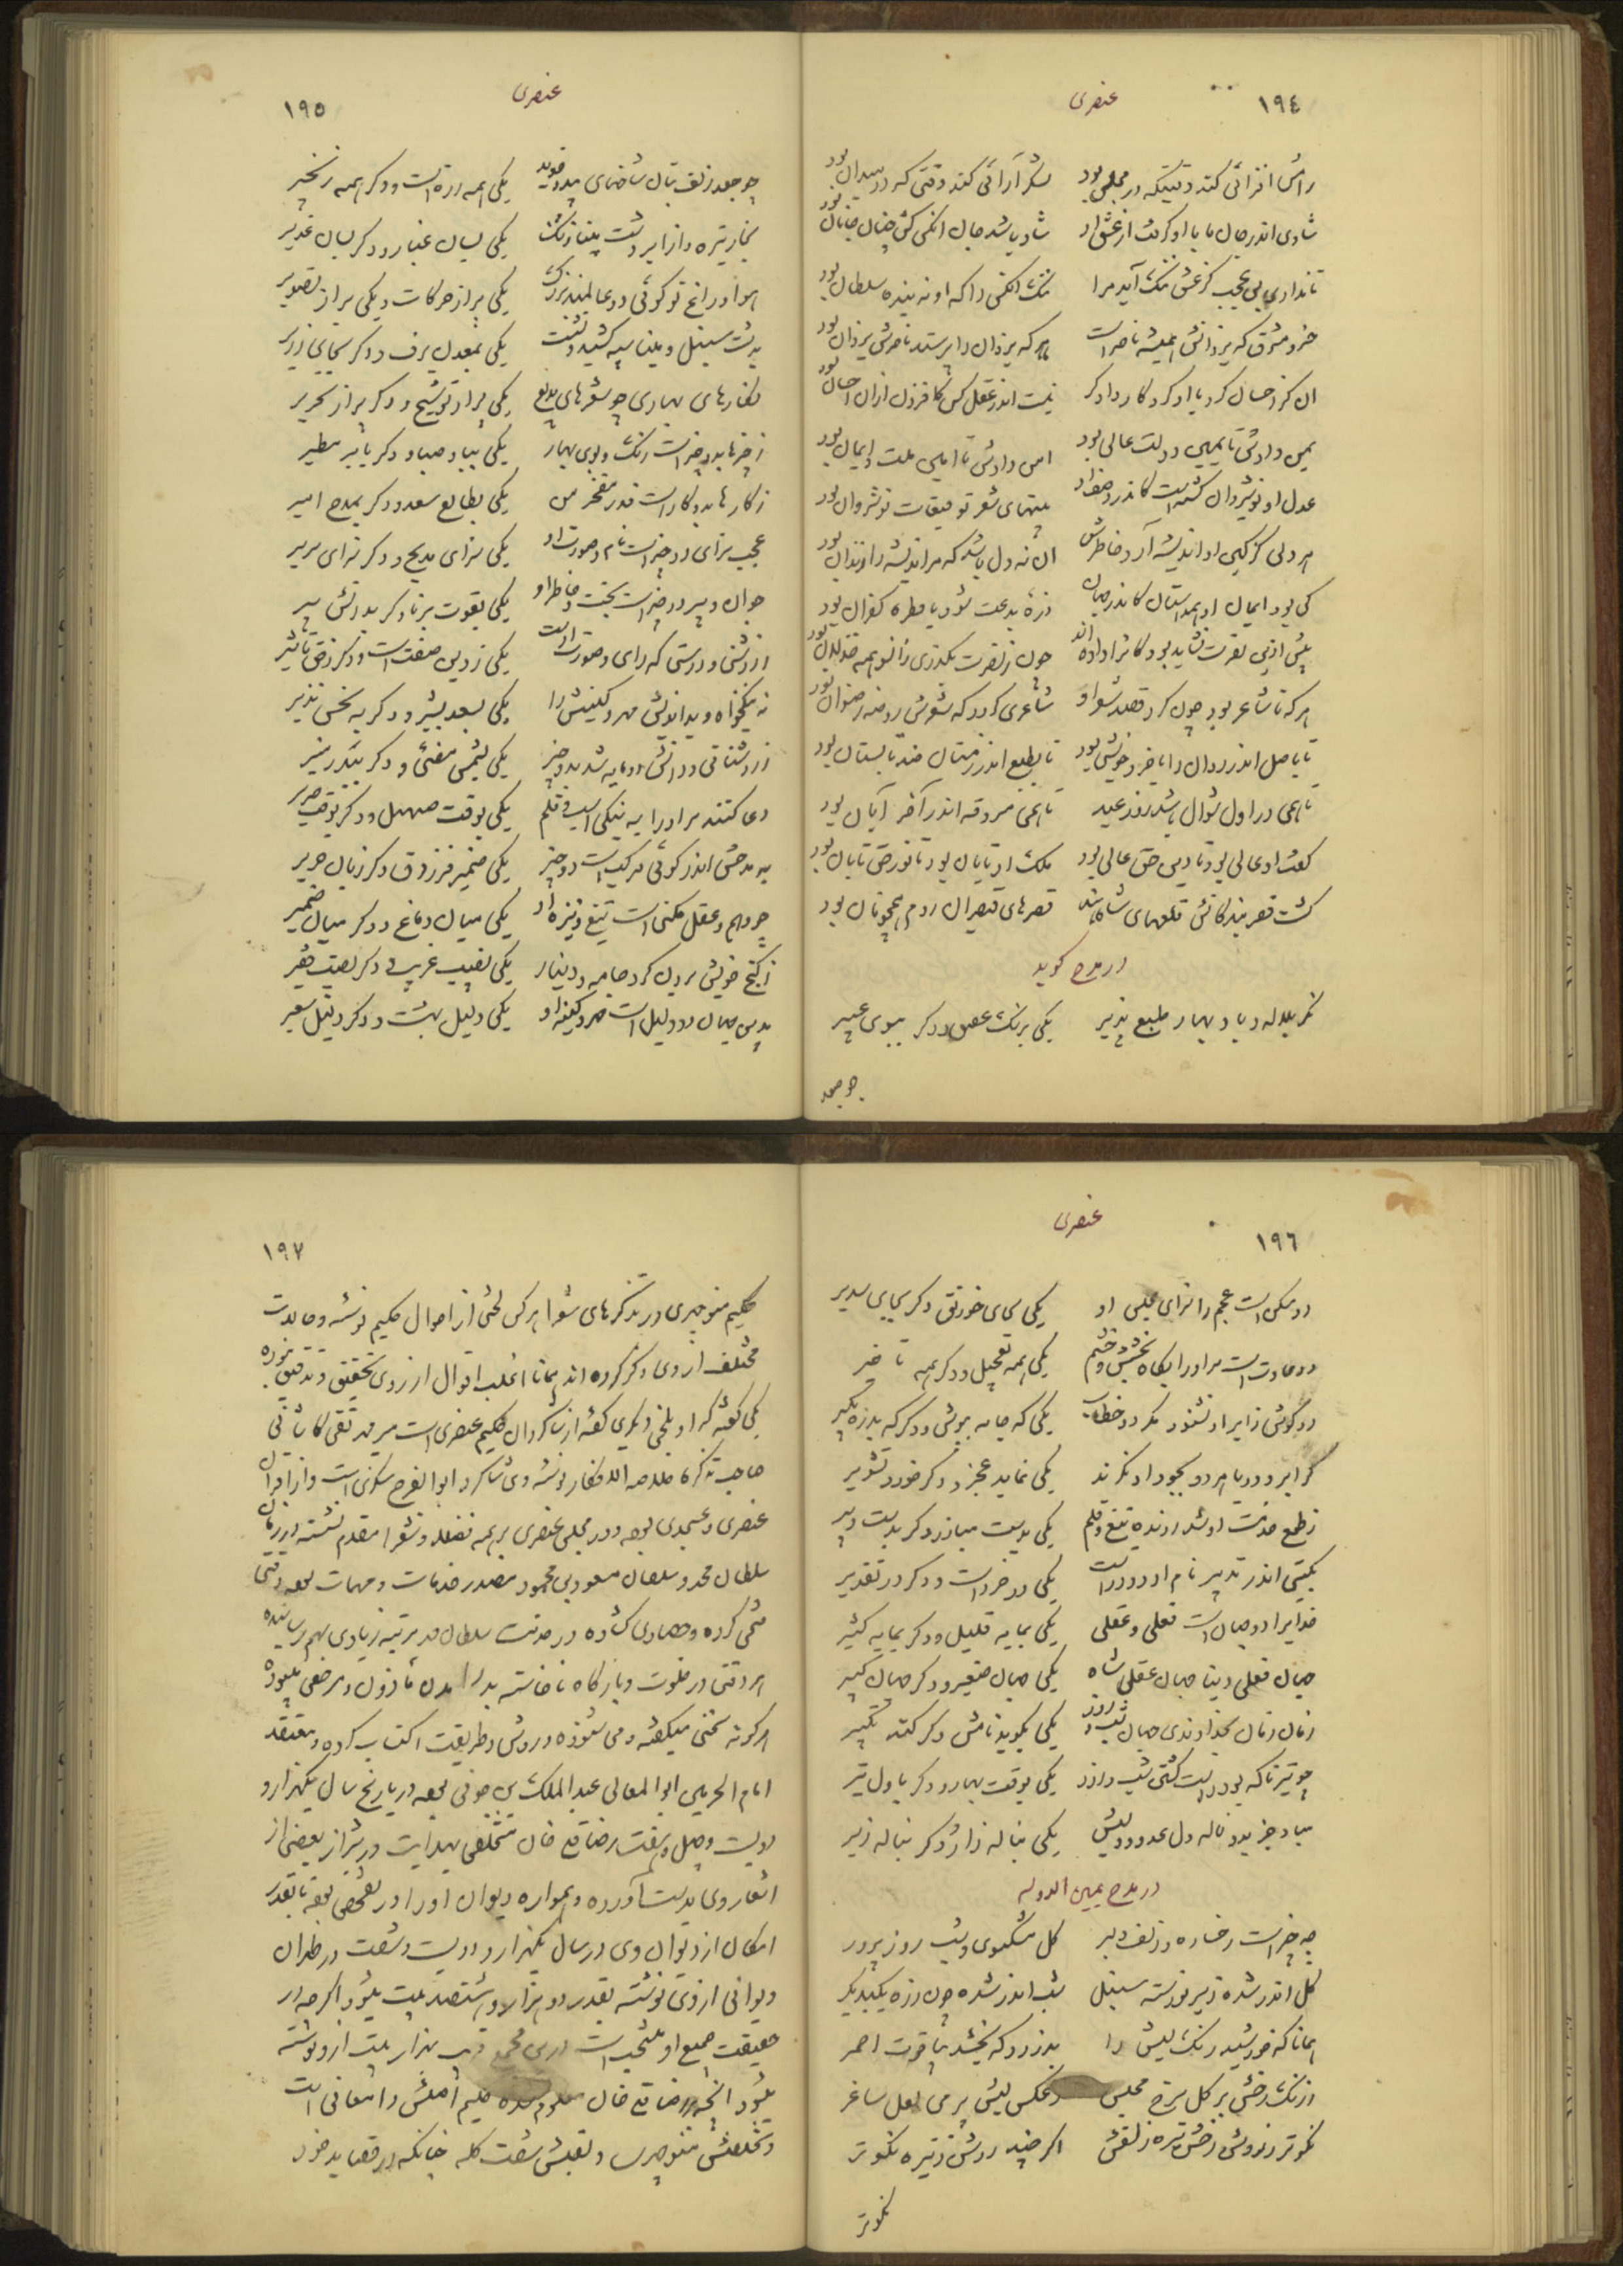 ١٩٤
عنصری
رامش افزائی کند وقتیکه در مجلس بود لشکر آرائی کند وقتی که در میدان بود
شادی اندر جان ما باوی گرفت از عشق او شاد باشد جان انکس کش چنان جانان بود
تا نداری بس عجب کز عشق ننگ آید مرا ننگ انکس را که او نه بنده سلطان بود
خسرو مشرق که یزدانش همیشه ناصر است هر که یزدان را پرستد ناصرش یزدان بود
ان کز احسان کرد با او کردگار دادگر نیست اندر عقل کس کافزون ازان احسان بود
یمن دادش تا یمین دولت عالی بود امن دادش تا امین ملت و ایمان بود
عدل او نوشیروان گشته است کاندر
بیتهای شعر توقیعات نوشروان بود
هر دلی کز کین او اندیشه آرد خاطرش ان نه دل باشد که مر اندیشه را زندان بود
کی بود ایمان او همداستان کاندر جهان ذره بدعت شود یا قطره کفران بود
بیش ازین نصرت نشاید بود کانرا داده اند چون ز نصرت بگذری زانسو همه خذلان بود
هر که نا شاعر بود چون کرد قصد شعر او شاعری گردد که شعرش روضه رضوان بود
تا باصل اندر روان را با خرد خویشی بود تا بطبع اندر زمستان ضد تابستان بود
تا همی در اول شوال باشد روز عید تا همی مر وقه اندر آخر آبان بود
کعبت او عالی بود تا دین حق عالی بود ملک او تابان بود تا نور حق تابان بود
گشت قصر بندگانش قلعهای شاه هند قصرهای قیصران روم همچونان بود
در مدح گوید
نگر بلاله و باد بهار طبع پذیر یکی برنگ عقیق و دگر ببوی عبیر
چو جعد
١٩٥
عنصری
چو جعد زلف بتان شاخهای بید و خوید یکی همه زره است و دگر همه زنجیر
بخار تیره و از ابر دشت مینا رنگ یکی بسان غبار و دگر بسان غدیر
هوا و راغ تو گوئی دو عالمند بزرگ یکی پر از حرکات و یکی پر از تصویر
بدشت سنبل و مینا سپه کشید و نشست یکی بمعدن برف و دگر بجای زریر
نگارهای بهاری چو شعرهای بدیع یکی پر از توشیح و دگر پر از تحریر
ز چیزها بدو چیز است رنگ و بوی بهار یکی بباد صبا و دگر بابر مطیر
ز کارها بدو کار است قدر مفخر من یکی بطالع سعد و دگر بمدح امیر
عجب سزای دو چیز است نام و صورت او یکی سزای مدیح و دگر سزای سریر
جوان و پیر دو چیز است بخت و خاطر او یکی بقوت برنا و دگر بدانش پیر
ازوشتی و درستی که رای و صورت راست یکی ز دین صفت است و دگر ز حق تاثیر
نه نیکخواه و بداندیش مهر و کینش را یکی بسعد بشیر و دگر به نحس نذیر
ز روشنائی و دانش دو مایه شد بدو چیز یکی بشمس مضئی و دگر ببدر منیر
دعا کنند مر او را به نیکی اسب و قلم یکی بوقت صهیل و دگر بوقت صریر
به مدحش اندر گوئی مرکب است دو چیز یکی ضمیر فرزدق دگر زبان جریر
چو وهم و عقل مکین است تیغ و نیزه او یکی میان دماغ و دگر میان ضمیر
ز گنج خویش برون کرد جامه و دینار یکی نصیب غریب و دگر نصیب فقیر
بدین جهان دو دلیل است مهر و کینه او یکی دلیل بهشت و دگر دلیل سعیر
١٩٦
عنصری
دو مسکن است عجم را سزای مجلس او یکی بجای خورنق دگر بجای سدیر
دو عادت است مر او را بگاه بخشش و خشم یکی همه تعجیل و دگر همه تاخیر
دو گوش زایر او نشنود مگر دو خطاب یکی که جامه بپوش و دگر که بدره بگیر
گر ابر و دریا هر دو بجود او نگرند یکی نماید عجز و دگر خورد تشویر
ز طمع خدمت او شد رونده تیغ و قلم یکی بدست مبارز دگر بدست دبیر
بگیتی اندر تدبیر نام او دو در است یکی در خرد است و دگر در تقدیر
خدایرا دو جهان است فعلی و عقلی یکی بمایه قلیل و دگر بمایه کثیر
جهان فعلی دنیا جهان عقلی شاه یکی جهان صغیر و دگر جهان کبیر
زمان زمان بخداوندی جهان شب و روز یکی بگوید نامش دگر کند تکبیر
چو تیز تا که بود راست گشتی شب و روز یکی بوقت بهار و دگر باول تیر
مباد جز بدو ناله دل عدو و دلیش یکی بناله زار و دگر بناله زیر
در مدح یمین الدوله
چه چیز است رخساره و زلف دلبر گل مشکبوی و شب روز پرور
گل اندر شده زیر نورسته سنبل شب اندر شده چون زره یکبدیگر
همانا که خورشید رنگ لبش را بدزدد که بخشد بیاقوت احمر
ز رنگ رخش پر گل سرخ مجلس ز عکس لبش پر می لعل ساغر
نکوتر ز روش رخش تیره زلفش اگر چند روشن ز تیره نکوتر
نکوتر
١٩٧
حکیم منوچهری در تذکرهای شعرا هر کس لختی از احوال حکیم نوشته و حالات
مختلف از وی ذکر کرده اند همانا اغلب اقوال از روی تحقیق و تدقیق نبوده
یکی گفته که او بلخی و دیگری گفته از شاگردان حکیم عنصری است میر تقی کاشانی
صاحب تذکره خلاصه الافکار نوشته وی شاگرد ابوالفرج سگزی است و از اقران
عنصری و عسجدی بوده و در مجلس عنصری بر همه فضلا و شعرا مقدم نشسته در زمان
سلطان محمد و سلطان مسعود بن محمود مصدر خدمات و مهمات بوده
کرده و حصاری گشاده در خدمت سلطان مرتبه زیادی بهم رسانیده
هر وقتی در خلوت و بارگاه ناخاسته بدرآمدن ماذون و مرخص میبوده
هر گونه سخنی میگفته و می شنوده در روش و طریقت اکتساب کرده و معتقد
امام الحرمین ابوالمعالی عبدالملک بن جوینی بوده در تاریخ سال یکهزار و
دویست و چهل و هفت رضا قلی خان متخلص بهدایت در شیراز بعضی از
اشعار وی بدست آورده و همواره دیوان او را در تفحص بوده تا بقدر
امکان از دیوان وی در سال یکهزار و دویست و شصت در طهران
دیوانی از وی نوشته بقدر دو هزار و ششصد بیت میشود اگر چه در
حقیقت جمیع او منتخب است درین مجمع قریب هزار بیت از او نوشته
میشود انچه رضا قلی خان معلوم شده حکیم اصلش دامغانی است
و تخلصش منوچهری و لقبش شصت کله چنانکه در قصاید خود